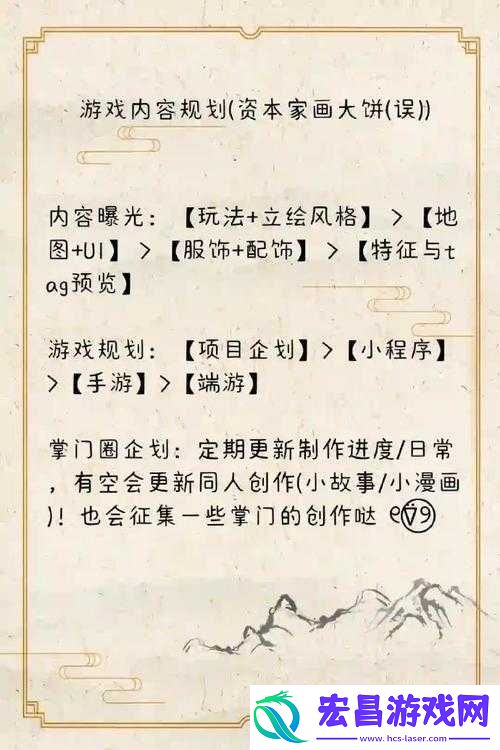 游戏内容规划(资本家画大饼(误))
内容曝光：【玩法+立绘风格】>【地
图+UI】>【服饰+配饰】>【特征与t
ag预览】
游戏规划：【项目企划】>【小程序】
>【手游】>【端游】
掌门圈企划：定期更新制作进度/日常
，有空会更新同人创作(小故事/小漫画
)！也会征集一些掌门的创作哒
宏昌游戏网
www.hcs-laser.com